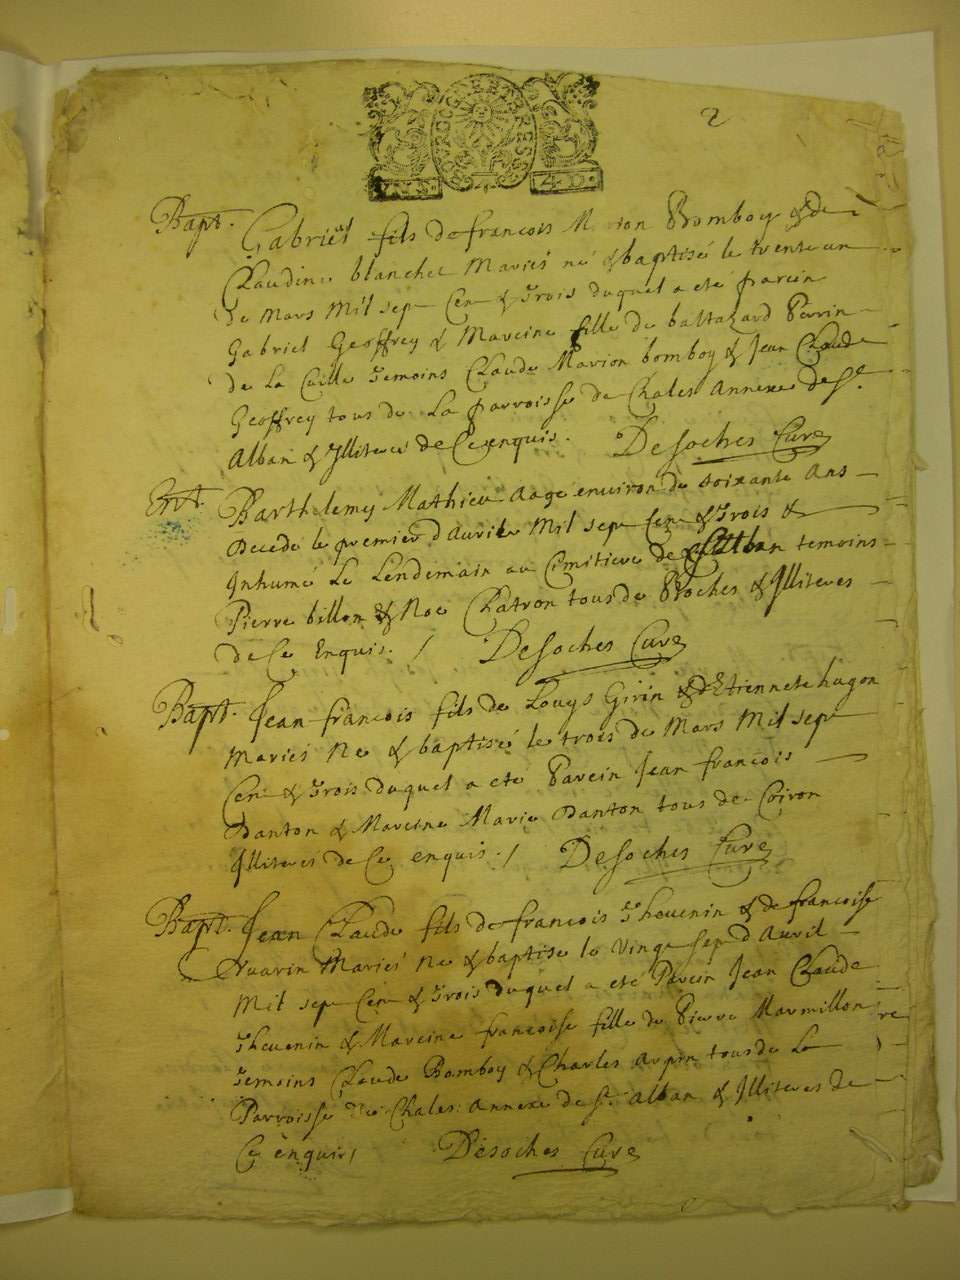 BOURG EN BRESSE
4 D.
2
Bapt. Gabriel fils de francois Marion Bomboy & de
Claudine blanchet Mariés né & baptisé le trente un
de Mars Mil sept Cent & Trois duquel a eté parein
Gabriel Geoffrey & Mareine fille de baltazard Perrin
de La Cuille Temoins Claude Marion bomboy & Jean Claude
Geoffrey tous de La parroisse de Chales Annexe de St.
Alban & Illiterés de Ce enquis. Desoches Curé
Ent. Barthelemy Mathieu aagé environ de soixante Ans
Decedé le premier d'Avrile Mil sept Cent & Trois &
Inhumé Le Lendemain au Cemitiere de St Alban temoins
Pierre billon & Noe Chatron tous de Poches & Illiteres
de Ce Enquis. / Desoches Curé
Bapt. Jean francois fils de Louys Girin & d'Etiennete hugon
Mariés Né & baptisé le trois de Mars Mil sept
Cent & Trois duquel a eté Parein Jean francois
Danton & Mareine Marie Danton tous de Coiron
Illiterés de Ce enquis. / Desoches Curé
Bapt. Jean Claude fils de francois Thevenin & de francoise
Nuarin Mariés Né & baptisé le Vingt sept d'Avril
Mil sept Cent & Trois duquel a eté Parein Jean Claude
Thevenin & Mareine francoise fille de Pierre Marmillon
Temoins Claude Bomboy & Charles Arpin tous de La
Parroisse de Chales Annexe de St. Alban & Illiteres de
Ce enquis / Desoches Curé